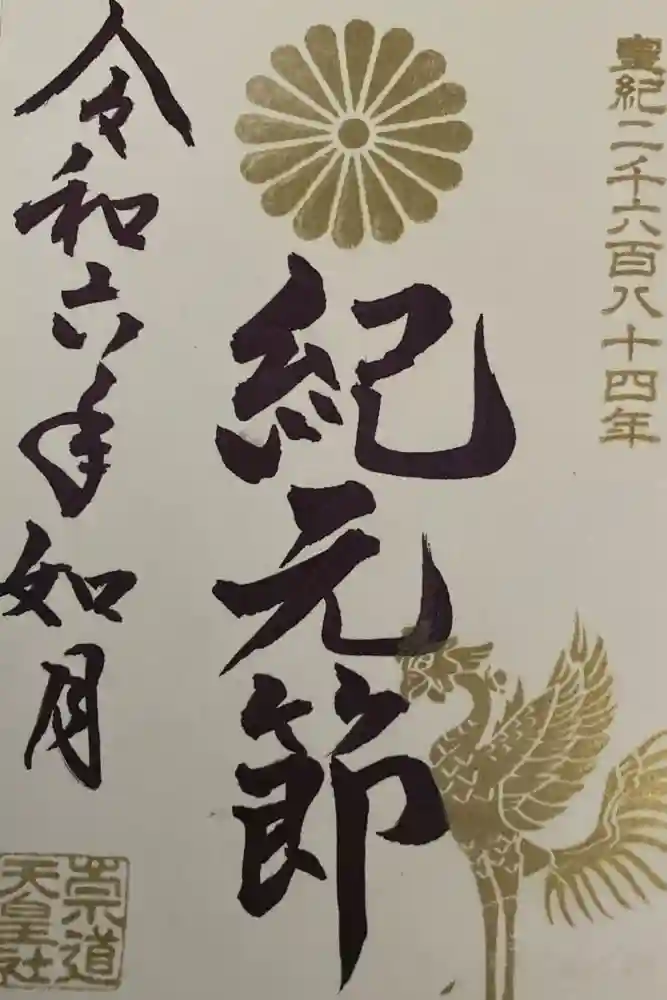 皇紀二千六百八十四年
紀元節
令和六年如月
崇道
天皇社